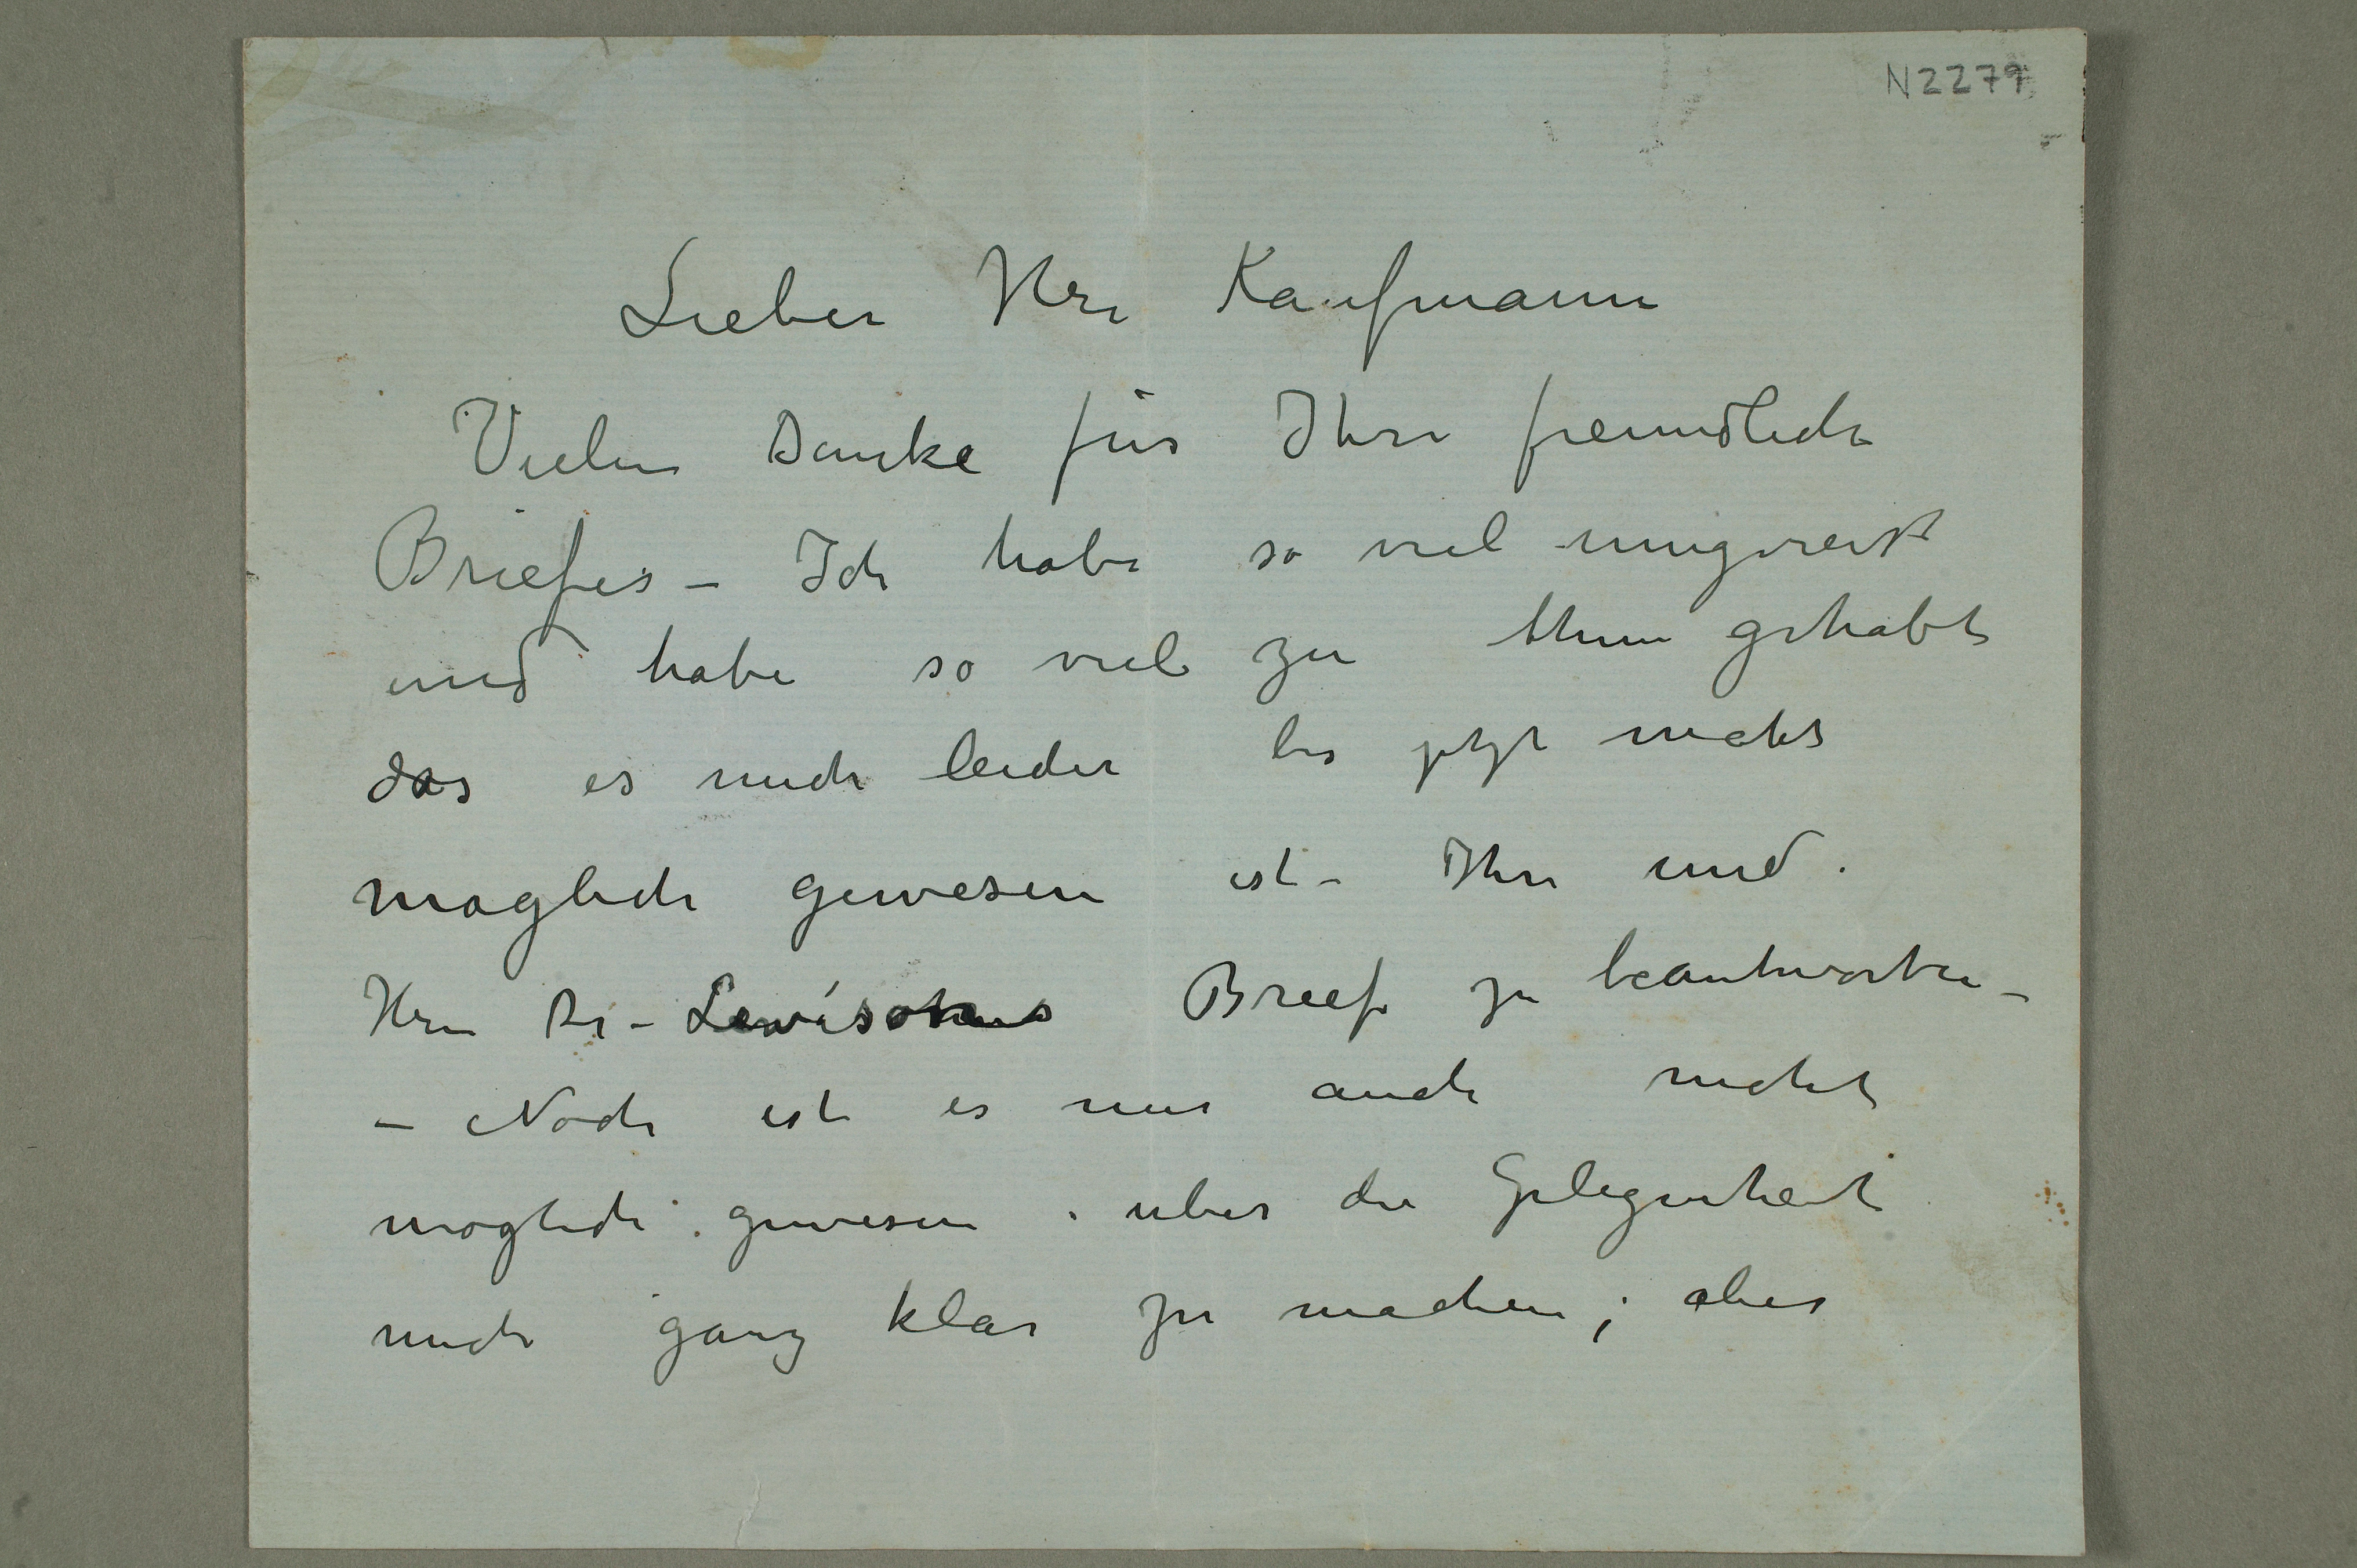 N2279
Lieber Herr Kaufmann
Vielen Danke für Ihre freundliche
Briefes – Ich habe so viel umgereist
und habe so viel zu thun gehabt
das es mich leider bis jetzt nicht
moglich gewesen ist – Ihre und
Hern Dr – Lewisohns Brief zu beantworten –
– Noch ist es mir auch nicht
moglich gewesen uber die Gelegenheit
mich ganz klar zu machen; aber